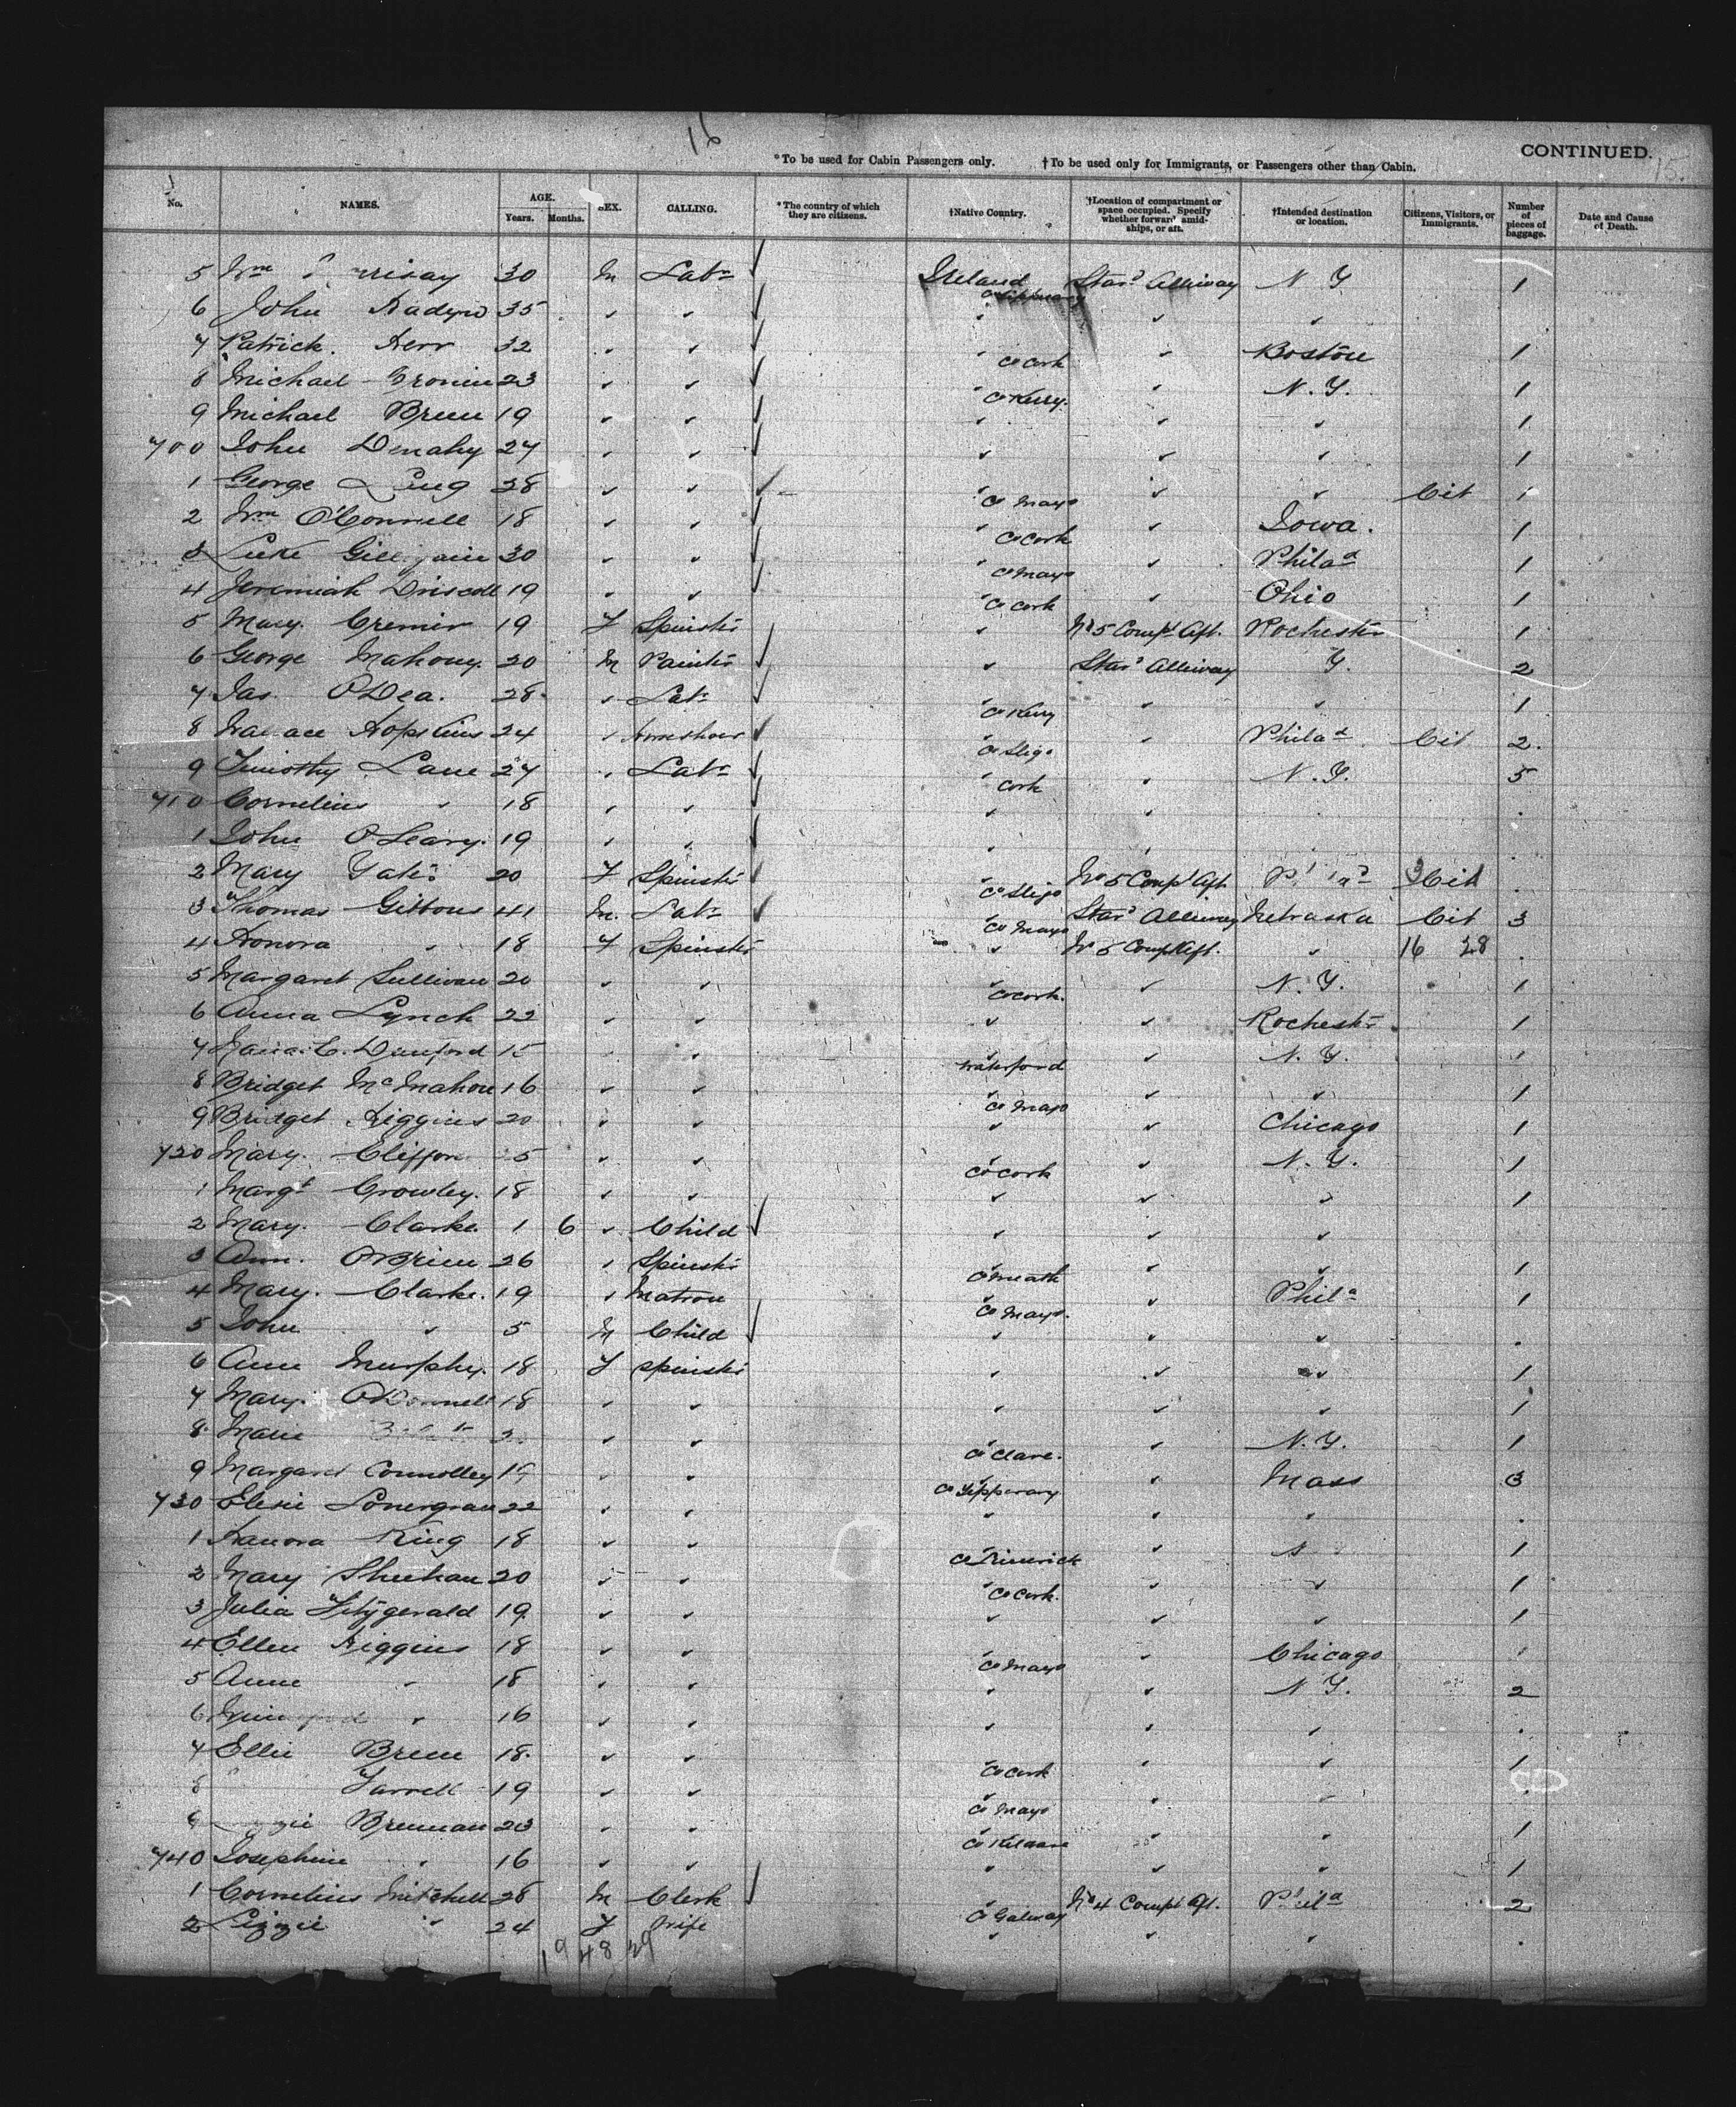 16
CONTINUED.
15.
*To be used for Cabin Passengers only. †To be used only for Immigrants, or Passengers other than Cabin.
No. NAMES. AGE. Years. Months. SEX. CALLING. *The country of which they are citizens. †Native Country. †Location of compartment or space occupied. Specify whether forward amidships, or aft. †Intended destination or location. Citizens, Visitors, or Immigrants. Number of pieces of baggage. Date and Cause of Death.
5 Wm 30 M Labr Ireland Co Tipperary Stard Alleway N Y 1
6 John 35 " " " " "
7 Patrick 32 " " " Co Cork " Boston 1
8 Michael Cronin 23 " " " Co Kerry. " N.Y. 1
9 Michael Breen 19 " " " " " 1
700 John Denahy 27 " " " " " 1
1 George 28 " " " Co Mayo " " Cit 1
2 Wm O'Connell 18 " " " Co Cork " Iowa. 1
3 Luke 30 " " " Co Mayo " Philad 1
4 Jeremiah Driscoll 19 " " " Co Cork " Ohio 1
5 Mary Cremin 19 F Spinstr " No 5 Compt Aft. Rochestr 1
6 George Mahony. 20 M Paintr " Stard Alleway Y. 2
7 Jas. O'Dea. 28 " Labr " Co Kerry " " 1
8 Wallace Hopkins 24 " " Co Sligo " Philad. Cit 2.
9 Timothy Lane 27 " Labr " Cork " N.Y. 5
710 Cornelius " 18 " " " " " .
1 John O'Leary. 19 " " " " " .
2 Mary 20 F Spinstr " Co Sligo No 5 Compt Aft Cit .
3 Thomas Gibbons 41 M. Labr " Co Mayo Stard Alleway Nebraska Cit 3
4 Honora " 18 F Spinstr " No 5 Compt Aft. " 16 28 .
5 Margaret Sullivan 20 " " " Co Cork. " N.Y. 1
6 Anna Lynch 22 " " " " Rochestr 1
7 C. Dunford 15 " " " Waterford " N.Y. 1
8 Bridget McMahon 16 " " " Co Mayo " " 1
9 Bridget Higgins 20 " " " " Chicago 1
720 Mary. " " " Co Cork " N.Y. 1
1 Margt Crowley. 18 " " " " " 1
2 Mary. Clarke. 1 6 " Child " " "
3 Ann. O'Brien 26 " Spinstr " Co Meath " " 1
4 Mary. Clarke. 19 " Matron " Co Mayo. " Phila 1
5 John " 5 M Child " " " .
6 Ann Murphy. 18 F Spinstr " " " 1
7 Mary. O'Donnell 18 " " " " " 1
8 Maria " " " Co Clare. " N.Y. 1
9 Margaret Connolley 19 " " " Co Tipperary " Mass 3
730 Lonergan 22 " " " " " .
1 Hanora King 18 " " " Co Limerick " 1
2 Mary Sheehan 20 " " " Co Cork. " " 1
3 Julia Fitzgerald 19 " " " " " 1
4 Ellen Higgins 18 " " " Co Mayo " Chicago 1
5 Anne " 18 " " " " N Y. 2
6 " 16 " " " " " .
7 Ellie Breen 18. " " " Co Cork " " 1
8 Farrell 19 " " " Co Mayo " "
9 Brennan 23 " " " Co Kildare " " 1
740 Josephine " 16 " " " " " 1
1 Cornelius Mitchell 28 M Clerk " Co Galway No 4 Compt Aft. Phila 2
2 Lizzie " 24 F Wife " " " .
19 48 29